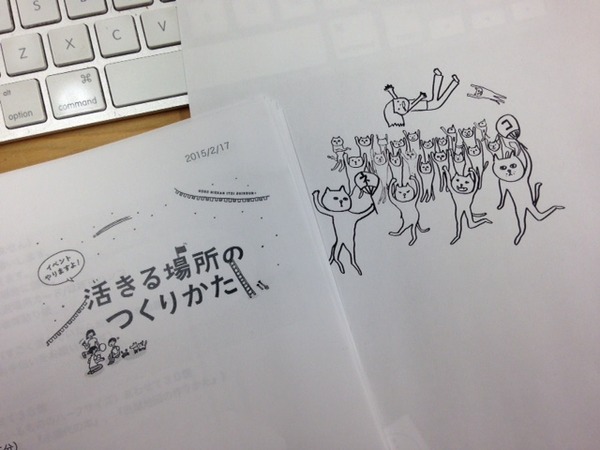 Z
X
C
alt
option
⌘
command
2015/2/17
イベント
やりますよ!
活きる場所の
つくりかた
ネ
コ
分)